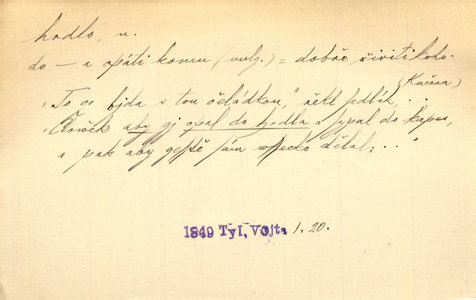 hrdlo, n.
do — a cpáti komu (vulg.) = dobře živiti koho.
(Kučera)
„To os bjda s tou čeládkou," řekl sedlák, ..
„Člověk aby gj cpal do hrdla a cpal do kapes,
a pak aby gesstě sám wssecko dělal; . . "
1849 Tyl, Vojta 1. 20.